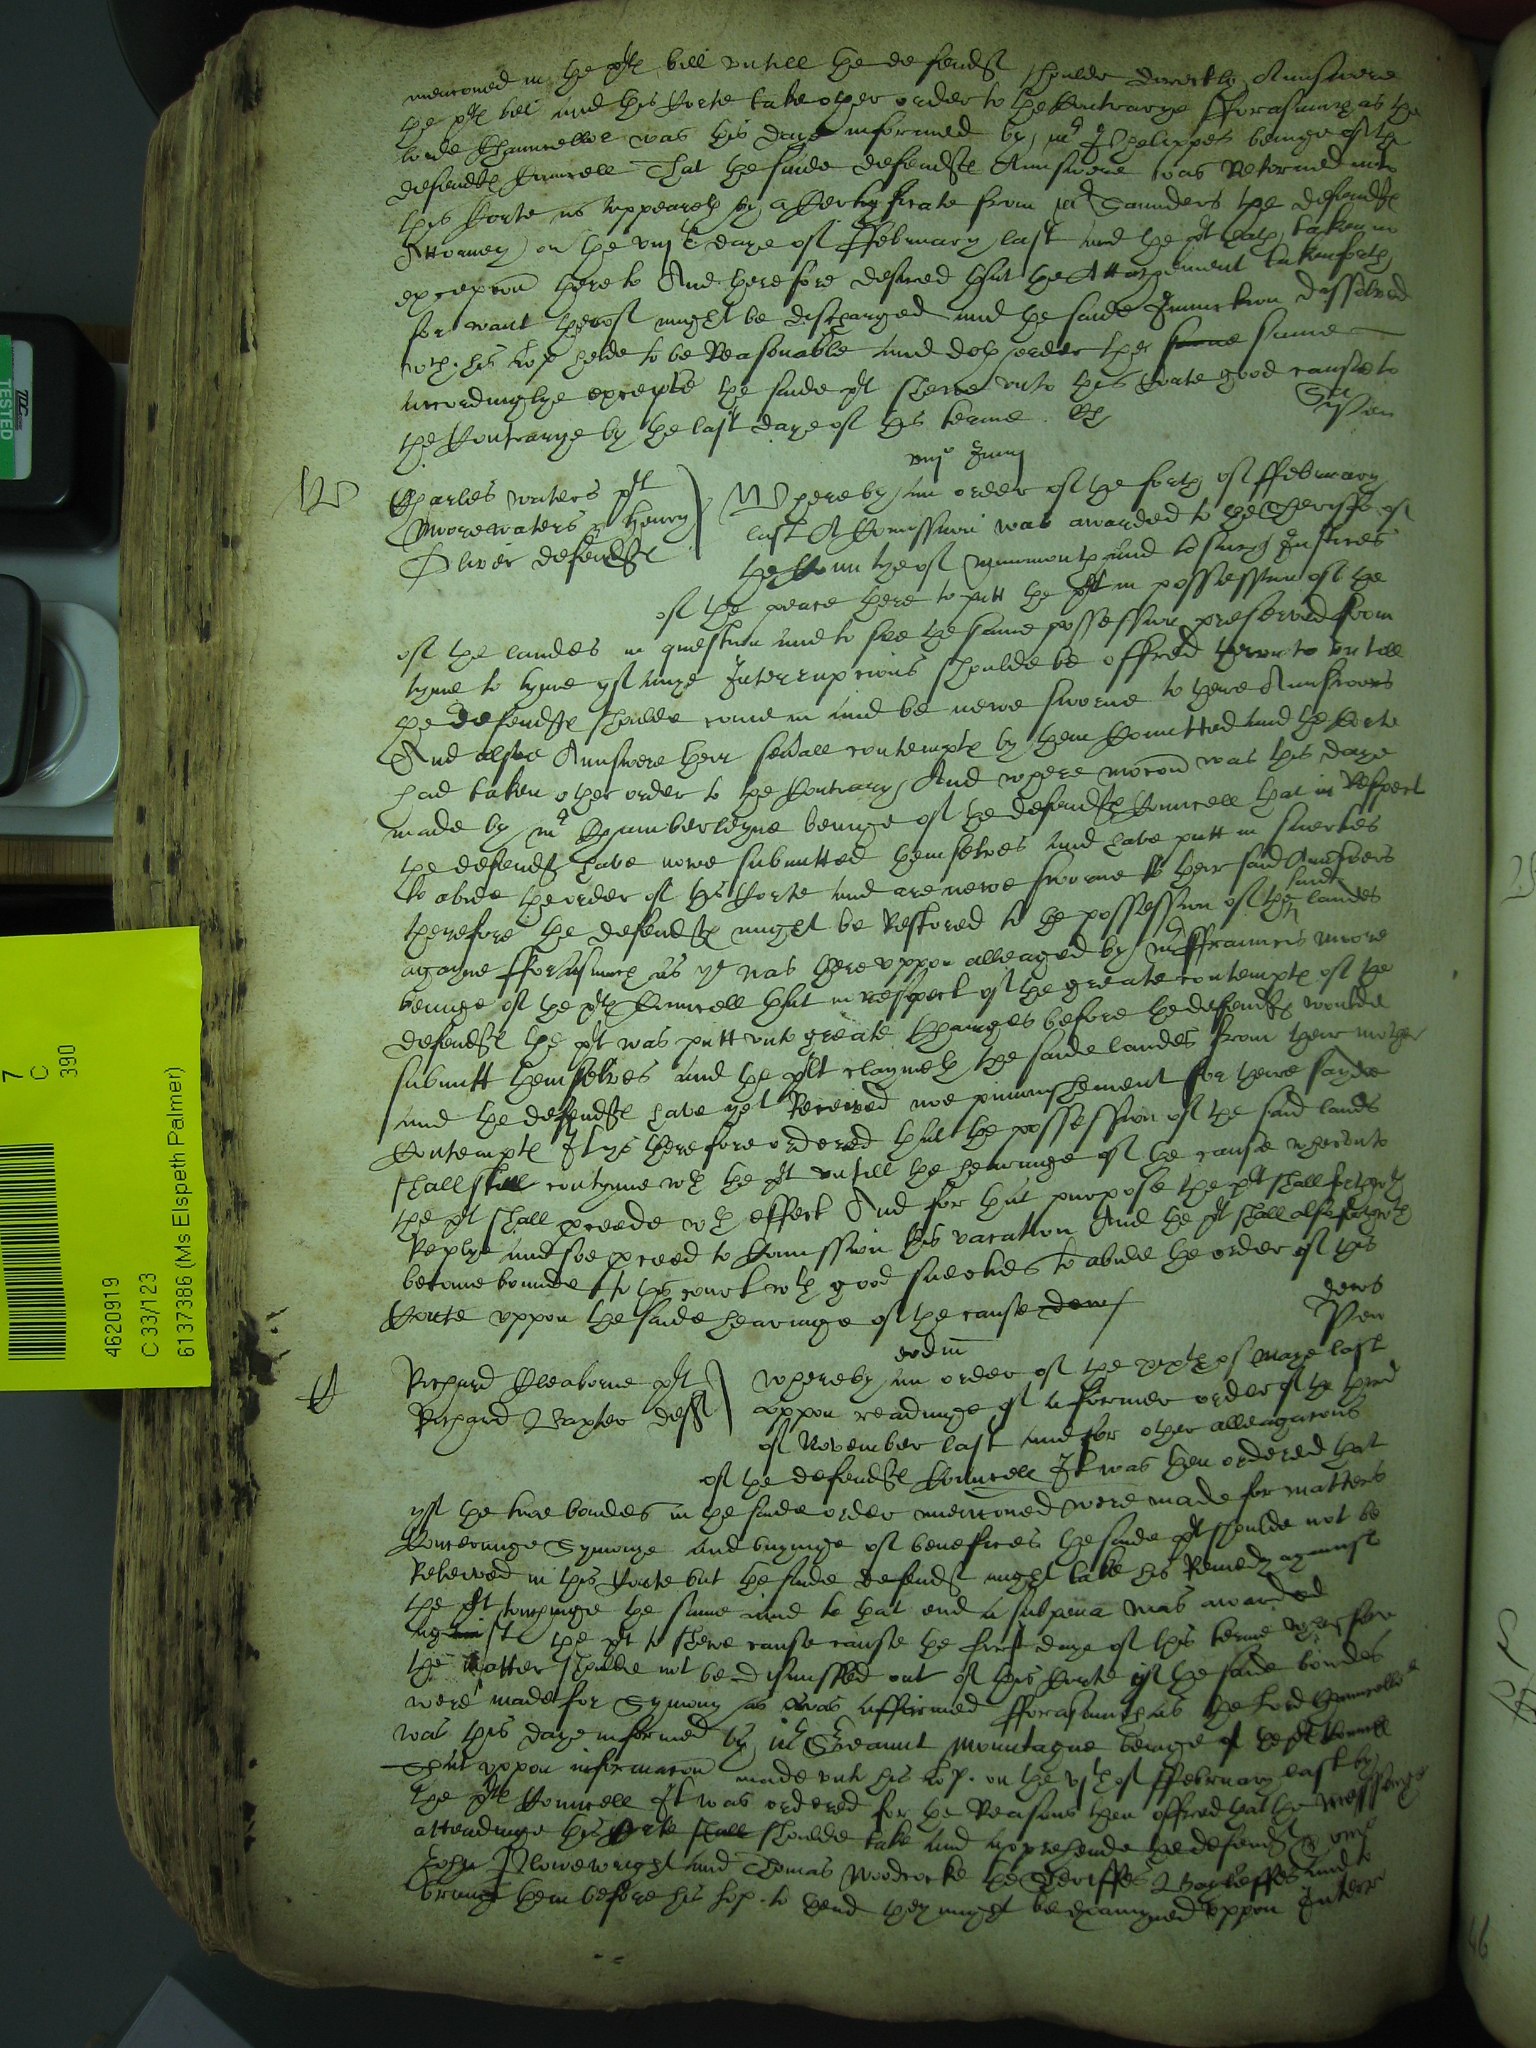 mencioned in the plts bill untill the defendt shoulde directly Aunswere
the plts bill and this Corte take other order to the Contrarye fforasmuch as the
lorde Chauncellor was this daye informed by mr Phelippes beinge of the
defendts Councell That the saide defendts Aunswere was Retorned into
this Corte as appeareth by a Certyficate from mr Saunders the defendts
Attorney on the daye of ffebruary last and the plt hath taken no
excepcon thereto And therefore desired that the Attachement taken forth
for want therof might be discharged and the saide Iniunction dissolved
wch his lop helde to be Reasonable and doth order the same
accordinglye excepte the saide plt shewe unto this Corte good cause to
the Contrarye by the last daye of this terme
viijo Junij
W
Charles waters plt
Moore waters & Henry
Oliver defendts
Whereby an order of the forth of ffebruary
last A Comission was awarded to the Sheriffe of
the Countye of monmouth and to such Justices
of the peace there to putt the plt in possession of the
of the landes in question and to see the same possession preserved from
tyme to tyme yf anye Interrupcions shoulde be offred therunto untill
the defendts shoulde come in and be newe sworne to there Aunswers
And alsoe Aunswere their sevrall contempts by them Comitted and the Corte
had taken other order to the Contrary And where mocon was this daye
made by mr Chamberleyne beinge of the defendts Councell that in Respect
the defendts have nowe submitted themselves and have putt in suerties
to abide the order of this Corte and are newe sworne to their said Aunswers
therefore the defendts might be Restored to the possession of the said landes
agayne fforasmuch as yt was thereuppon alleaged by mr ffrauncis moore
beinge of the plts Councell that in respect of the greate contempts of the
defendts the plt was putt unto greate Chardges before the defendts woulde
submitt themselves and the plt claymeth the saide landes from their mother
and the defendts have yet Received noe punnishement for there sayde
Contempts It ys therefore ordered that the possession of the said lands
shall still contynue wth the plt untill the hearinge of the cause wherunto
the plt shall proceede wth effect And for that purpose the plt shall forthwth
Replye and soe proceed to Comission this vacation And the plt shall also forthwth
become bounde to this court wth good suerties to abide the order of this
Corte uppon the saide hearinge of the cause
Pen
eodm
Richard Cleaborne plt
Richard Baxter deft
Whereby an order of the of Maye last
uppon readinge of a former order of the third
of November last and for other alleagacons
of the defendts Councell It was then ordered that
yf the twoe bondes in the saide order mencioned were made for matters
Concerninge Symonye and buyinge of benefices the saide plt shoulde not be
Releived in this Corte but the saide defendt might take his Remedy against
the plt towchinge the same and to that end a subpena was awarded
against the plt to shewe cause cause the first daye of this terme wherfore
the matter shoulde not be dismissed out of this Corte yf the saide bondes
were made for Symony as was affirmed fforasmuch as the Lord Chauncellor
was this daye informed by mr Serieaunt Mountague beinge of the plts Councell
That uppon informacon made unto his lop. on the vth of ffebruary last by
the plts Councell It was ordered for the Reasons then offred that the messenger
attendinge this Corte shall shoulde take and apprehende the defendt & one
John Plowewright and Thomas Woodcocke the Sheriffes Bayleffes and to
bringe them before his lop. to thend they might be examyned uppon Interr
TESTED
7
C
390
4620919
C 33/123
6137386 (Ms Elspeth Palmer)